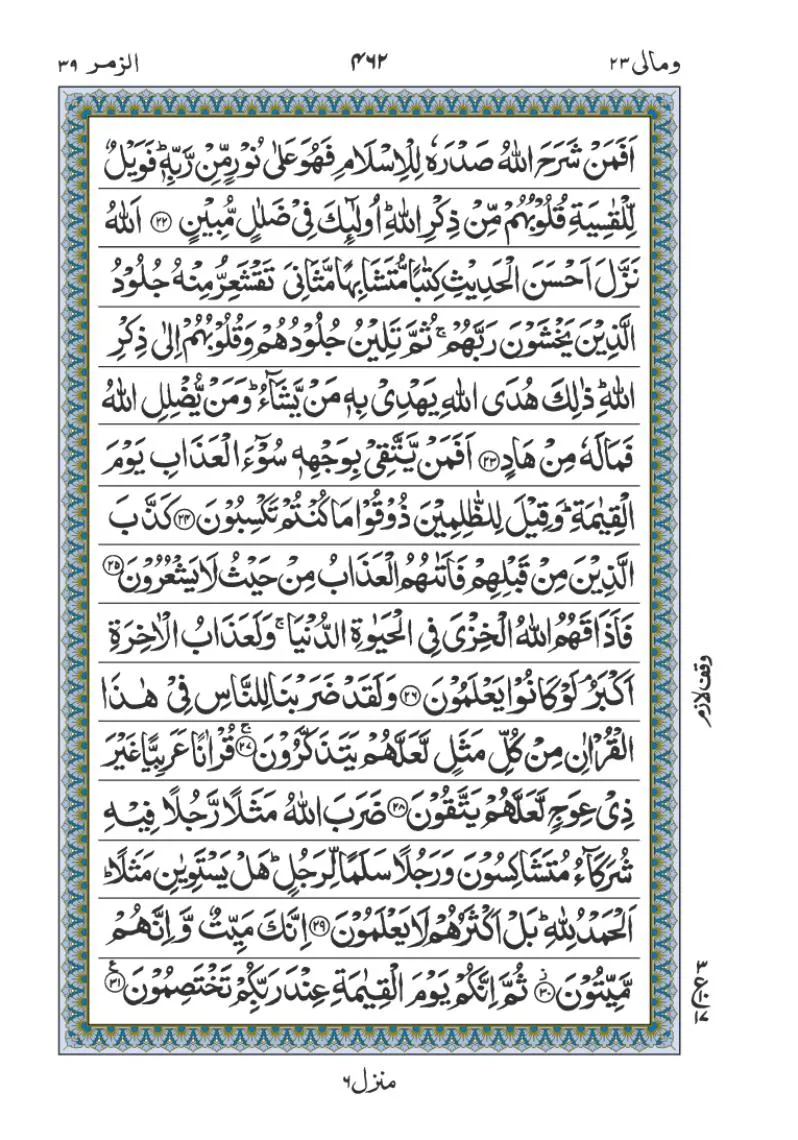 ومالی ۲۳ ۴۶۲ الزمر ۳۹
اَفَمَنْ شَرَحَ اللّٰهُ صَدْرَهٗ لِلْاِسْلَامِ فَهُوَ عَلٰی نُوْرٍ مِّنْ رَّبِّهٖ ؕ فَوَیْلٌ
لِّلْقٰسِیَةِ قُلُوْبُهُمْ مِّنْ ذِكْرِ اللّٰهِ ؕ اُولٰٓئِكَ فِیْ ضَلٰلٍ مُّبِیْنٍ ۝۲۲ اَللّٰهُ
نَزَّلَ اَحْسَنَ الْحَدِیْثِ كِتٰبًا مُّتَشَابِهًا مَّثَانِیَ تَقْشَعِرُّ مِنْهُ جُلُوْدُ
الَّذِیْنَ یَخْشَوْنَ رَبَّهُمْ ۚ ثُمَّ تَلِیْنُ جُلُوْدُهُمْ وَقُلُوْبُهُمْ اِلٰی ذِكْرِ
اللّٰهِ ؕ ذٰلِكَ هُدَی اللّٰهِ یَهْدِیْ بِهٖ مَنْ یَّشَآءُ ؕ وَمَنْ یُّضْلِلِ اللّٰهُ
فَمَا لَهٗ مِنْ هَادٍ ۝۲۳ اَفَمَنْ یَّتَّقِیْ بِوَجْهِهٖ سُوْٓءَ الْعَذَابِ یَوْمَ
الْقِیٰمَةِ ؕ وَقِیْلَ لِلظّٰلِمِیْنَ ذُوْقُوْا مَا كُنْتُمْ تَكْسِبُوْنَ ۝۲۴ كَذَّبَ
الَّذِیْنَ مِنْ قَبْلِهِمْ فَاَتٰىهُمُ الْعَذَابُ مِنْ حَیْثُ لَا یَشْعُرُوْنَ ۝۲۵
فَاَذَاقَهُمُ اللّٰهُ الْخِزْیَ فِی الْحَیٰوةِ الدُّنْیَا ۚ وَلَعَذَابُ الْاٰخِرَةِ
اَكْبَرُ ۘ لَوْ كَانُوْا یَعْلَمُوْنَ ۝۲۶ وَلَقَدْ ضَرَبْنَا لِلنَّاسِ فِیْ هٰذَا
الْقُرْاٰنِ مِنْ كُلِّ مَثَلٍ لَّعَلَّهُمْ یَتَذَكَّرُوْنَ ۝۲۷ۚ قُرْاٰنًا عَرَبِیًّا غَیْرَ
ذِیْ عِوَجٍ لَّعَلَّهُمْ یَتَّقُوْنَ ۝۲۸ ضَرَبَ اللّٰهُ مَثَلًا رَّجُلًا فِیْهِ
شُرَكَآءُ مُتَشَاكِسُوْنَ وَرَجُلًا سَلَمًا لِّرَجُلٍ ؕ هَلْ یَسْتَوِیٰنِ مَثَلًا ؕ
اَلْحَمْدُ لِلّٰهِ ؕ بَلْ اَكْثَرُهُمْ لَا یَعْلَمُوْنَ ۝۲۹ اِنَّكَ مَیِّتٌ وَّ اِنَّهُمْ
مَّیِّتُوْنَ ۝۳۰ؗ ثُمَّ اِنَّكُمْ یَوْمَ الْقِیٰمَةِ عِنْدَ رَبِّكُمْ تَخْتَصِمُوْنَ ۝۳۱
وقف لازم
منزل ۶